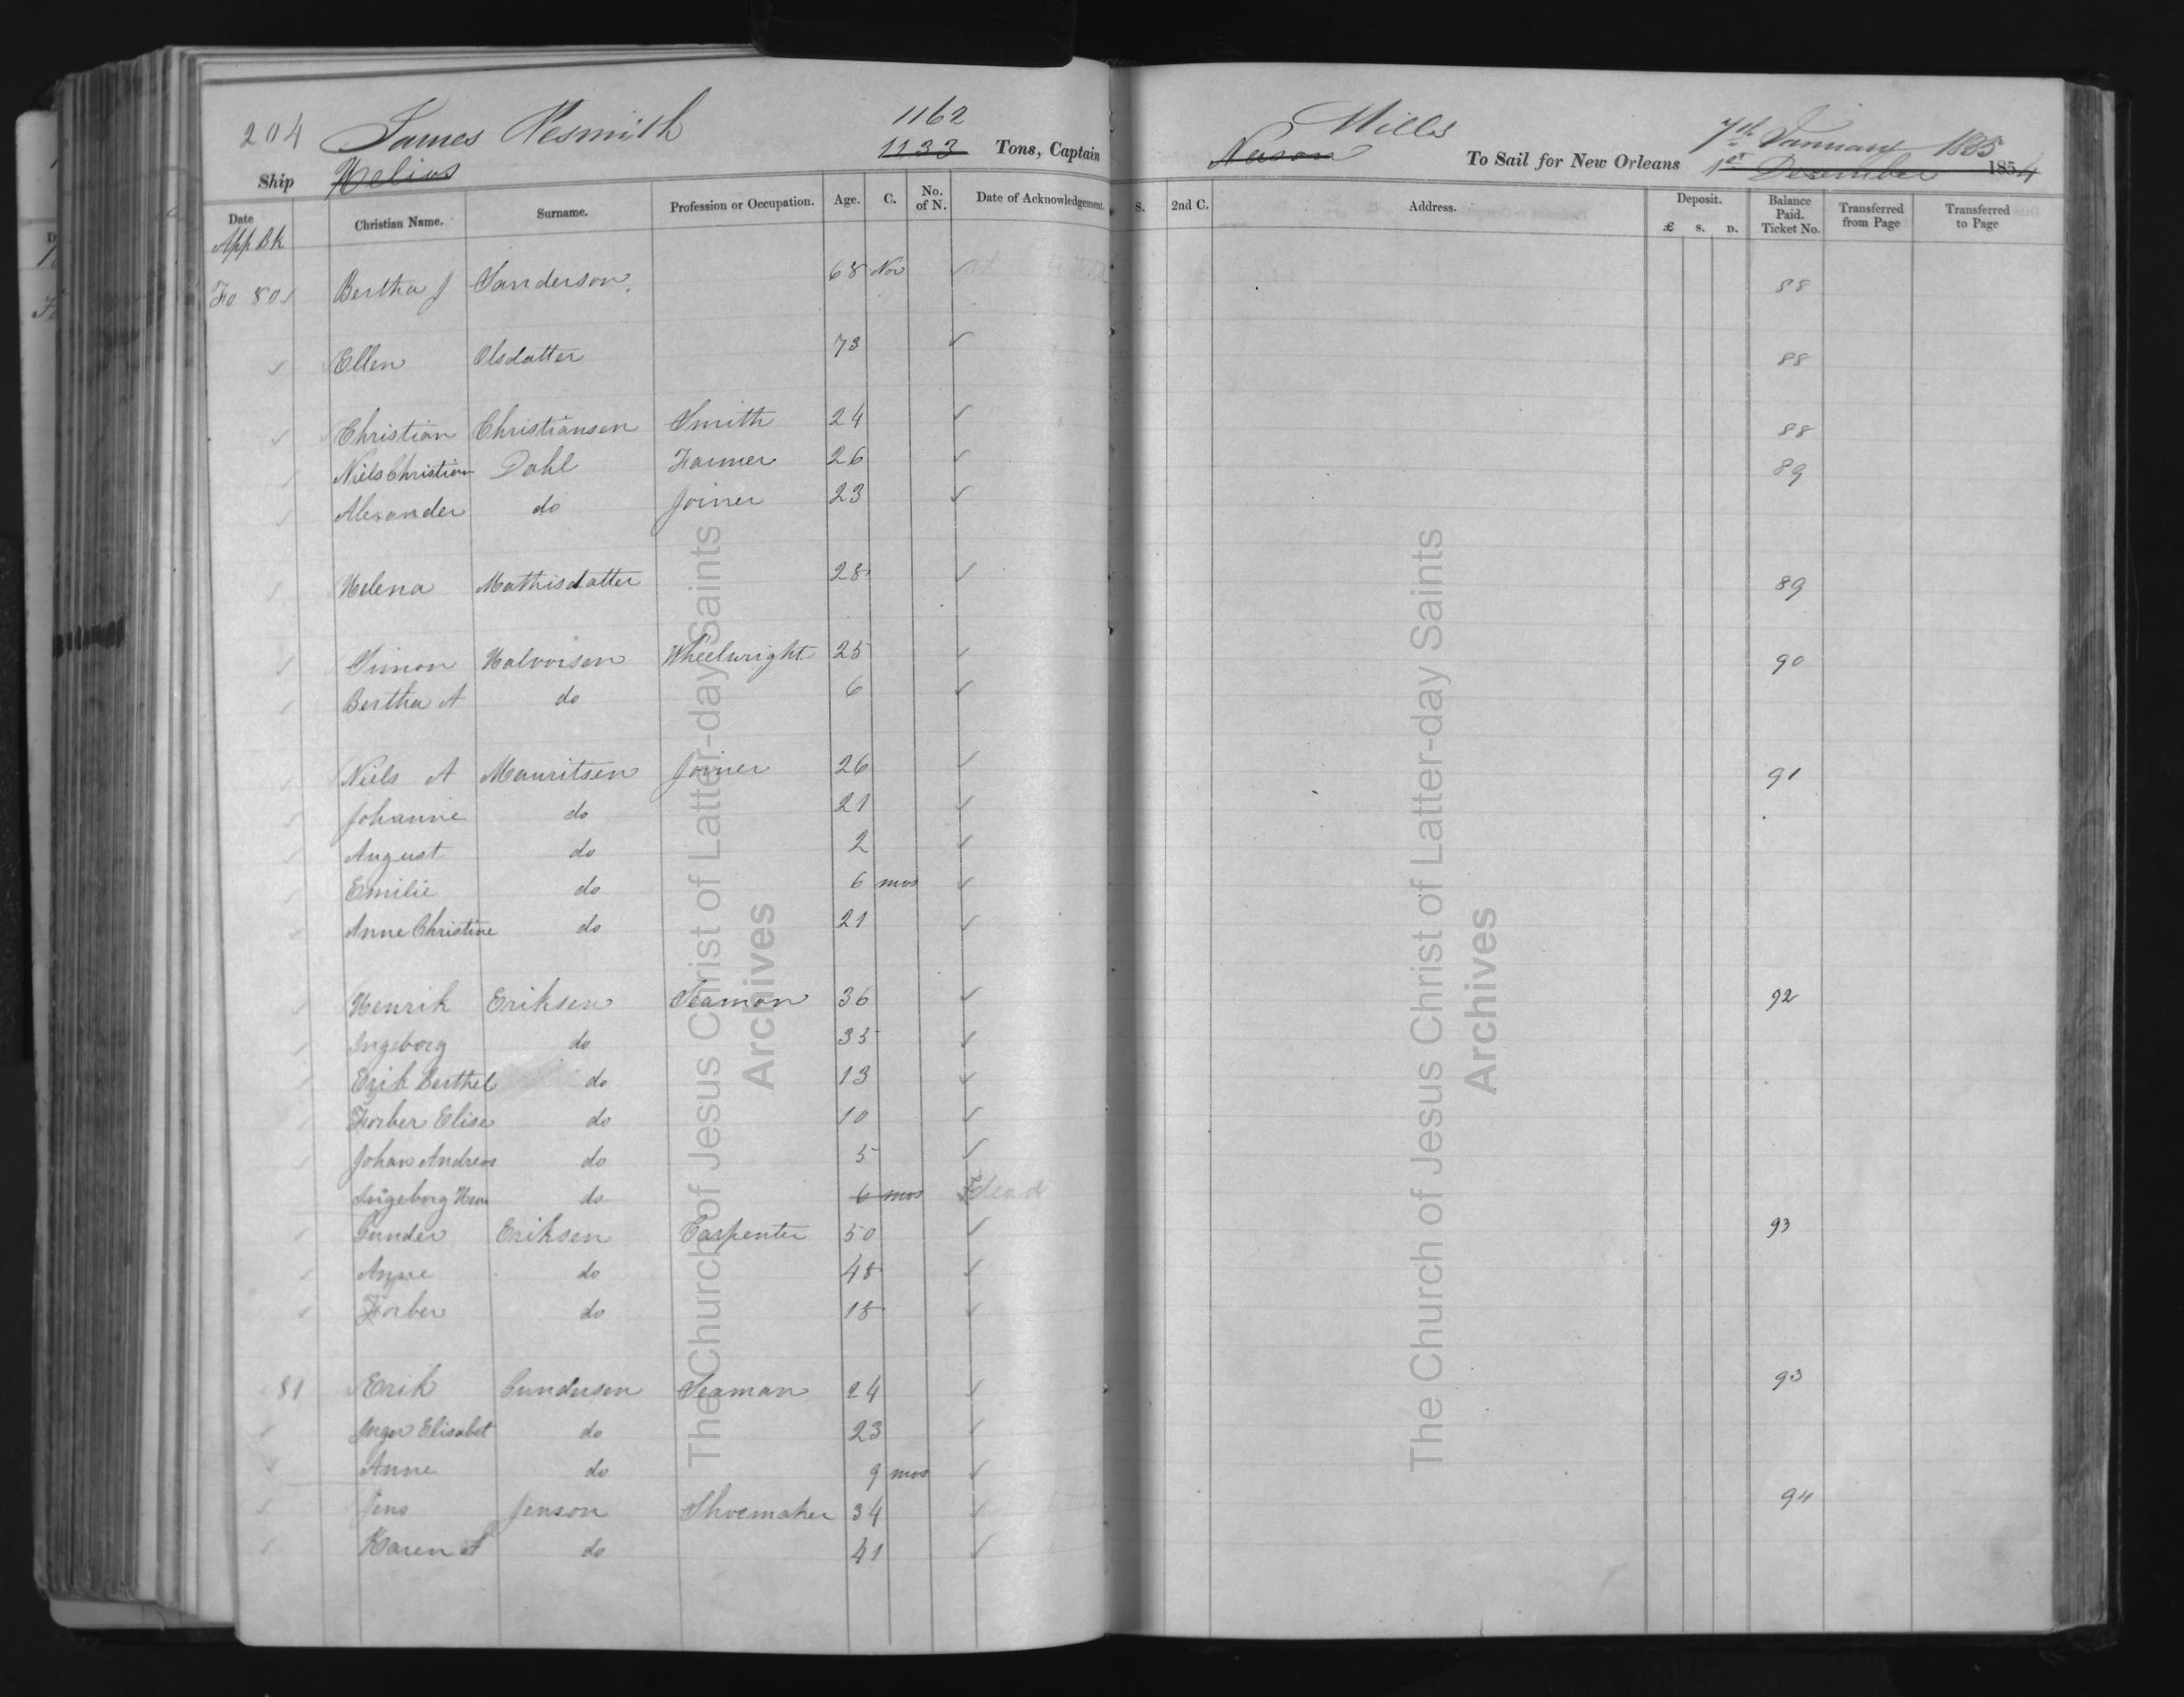 204 James Nesmith 1162 Mills 7th January 1855
Ship Helios 1133 Tons, Captain Nason To Sail for New Orleans 1st December 1854
Date Christian Name. Surname. Profession or Occupation. Age. C. No. of N. Date of Acknowledgement. S. 2nd C. Address. Deposit. £ S. D. Balance Paid. Ticket No. Transferred from Page Transferred to Page
App Bk
Fo 80 Bertha J Sanderson 68 Nov ✓ 88
✓ Ellen Olsdatter 73 ✓ 88
✓ Christian Christiansen Smith 24 ✓ 88
✓ Niels Christian Dahl Farmer 26 ✓ 89
✓ Alexander do Joiner 23 ✓
✓ Helena Mathisdatter 28 ✓ 89
✓ Simon Halvorsen Wheelwright 25 ✓ 90
✓ Bertha A do 6 ✓
✓ Niels A Mauritsen Joiner 26 ✓ 91
✓ Johanne do 21 ✓
✓ August do 2 ✓
✓ Emilie do 6 mos ✓
✓ Anne Christine do 21 ✓
✓ Henrik Eriksen Seaman 36 ✓ 92
✓ Ingeborg do 35 ✓
✓ Erik Berthel do 13 ✓
✓ Torber Elise do 10 ✓
✓ Johan Andreas do 5 ✓
Ingeborg do 6 mos dead
✓ Gunder Eriksen Carpenter 50 ✓ 93
✓ Anne do 48 ✓
✓ Torber do 18 ✓
81 Erik Gundersen Seaman 24 ✓ 93
✓ Inger Elisabet do 23 ✓
✓ Anne do 9 mos ✓
✓ Jens Jenson Shoemaker 34 ✓ 94
✓ Karen A do 41 ✓
The Church of Jesus Christ of Latter-day Saints
Archives
The Church of Jesus Christ of Latter-day Saints
Archives